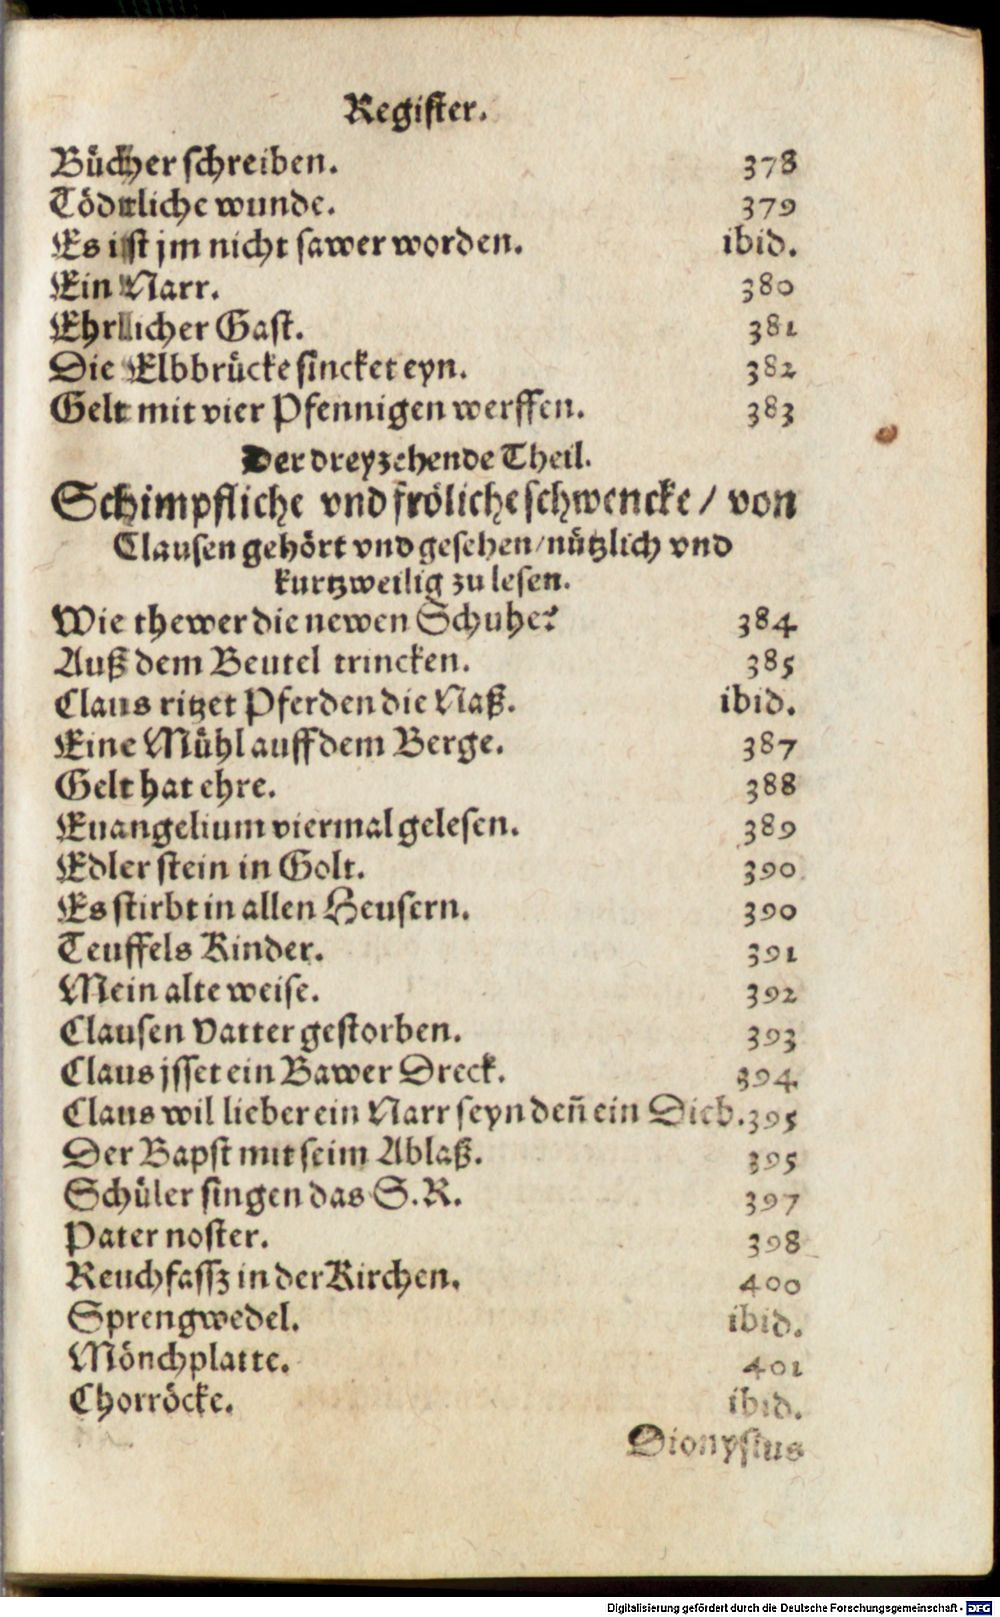 Register.
Bücher schreiben. 378
Tödtliche wunde. 379
Es ist jm nicht sawer worden. ibid.
Ein Narr. 380
Ehrlicher Gast. 381
Die Elbbrücke sincket eyn. 382
Gelt mit vier Pfennigen werffen. 383
Der dreyzehende Theil.
Schimpfliche vnd fröliche schwencke / von
Clausen gehört vnd gesehen / nützlich vnd
kurtzweilig zu lesen.
Wie thewer die newen Schuhe? 384
Auß dem Beutel trincken. 385
Claus ritzet Pferden die Naß. ibid.
Eine Mühl auff dem Berge. 387
Gelt hat ehre. 388
Euangelium viermal gelesen. 389
Edler stein in Golt. 390
Es stirbt in allen Heusern. 390
Teuffels Kinder. 391
Mein alte weise. 392
Clausen Vatter gestorben. 393
Claus jsset ein Bawer Dreck. 394
Claus wil lieber ein Narr seyn deñ ein Dieb. 395
Der Bapst mit seim Ablaß. 395
Schüler singen das S. R. 397
Pater noster. 398
Reuchfassz in der Kirchen. 400
Sprengwedel. ibid.
Mönchplatte. 401
Chorröcke. ibid.
Dionysius
Digitalisierung gefördert durch die Deutsche Forschungsgemeinschaft - DFG